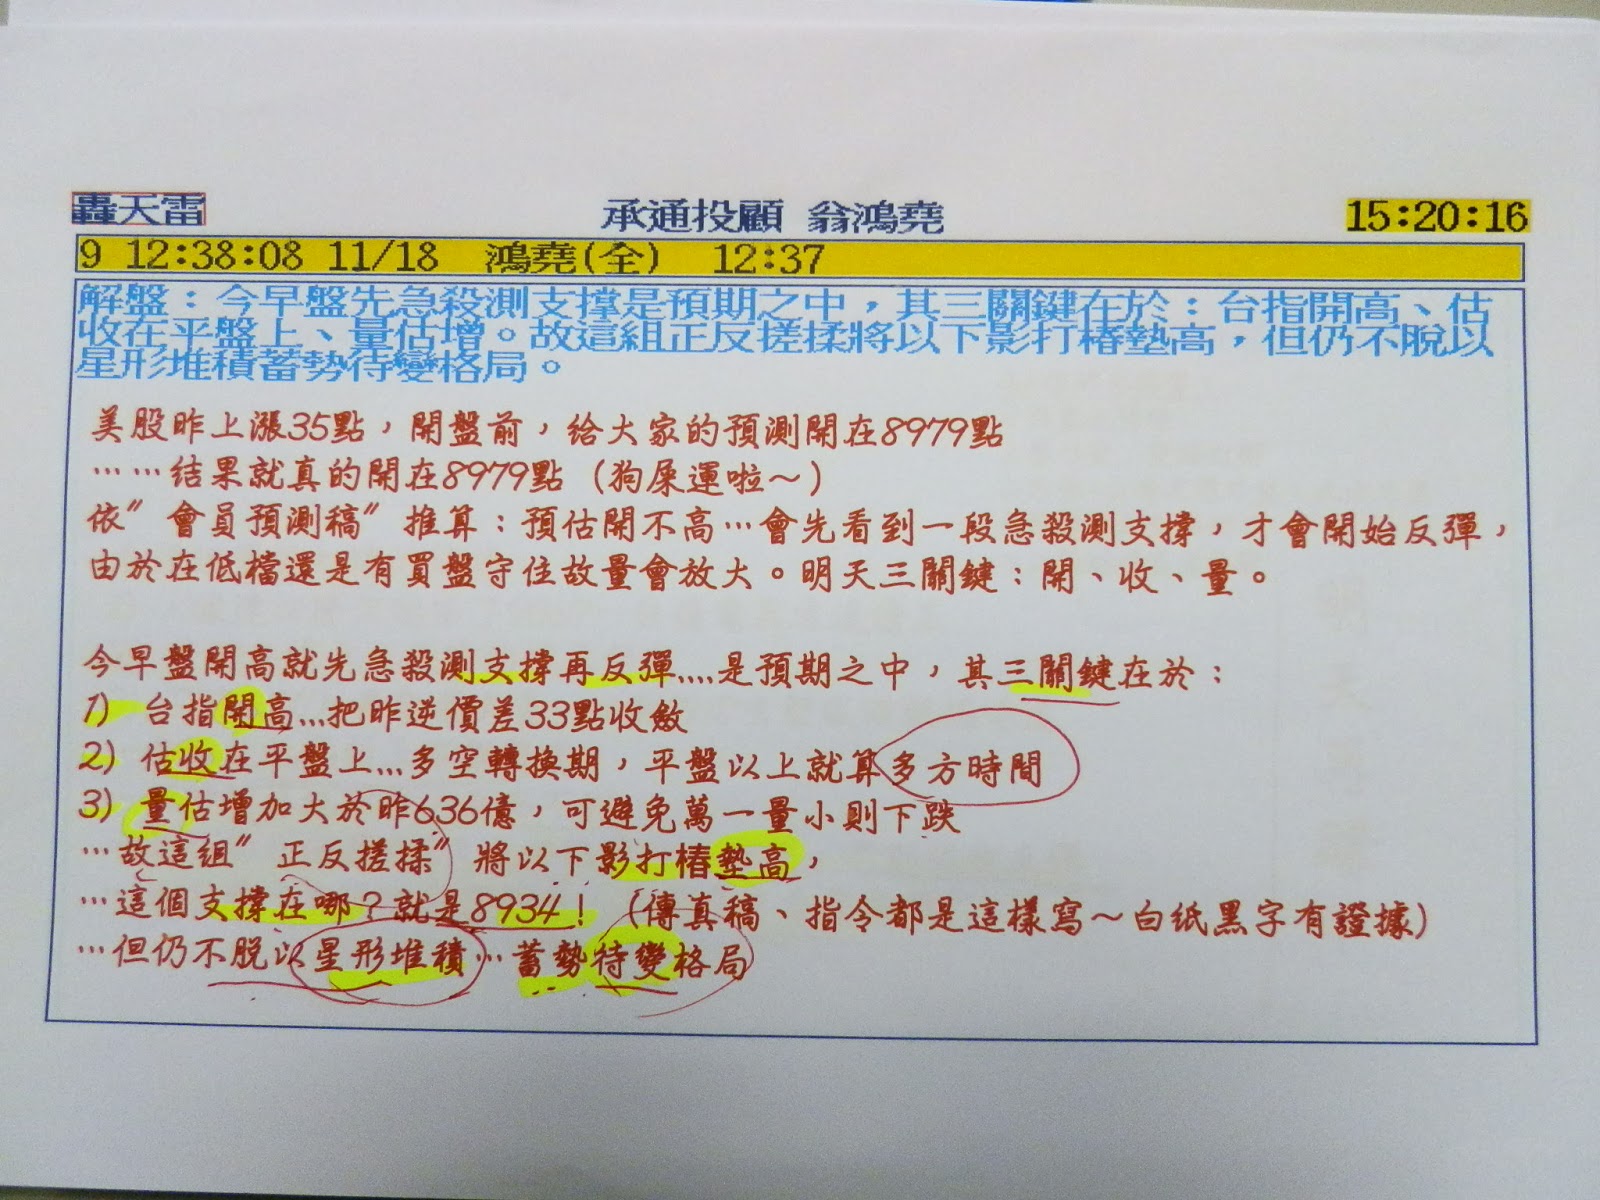 轟天雷 承通投顧 翁鴻堯 15:20:16
9 12:38:08 11/18 鴻堯(全) 12:37
解盤：今早盤先急殺測支撐是預期之中，其三關鍵在於：台指開高、估
收在平盤上、量估增。故這組正反搓揉將以下影打樁墊高，但仍不脫以
星形堆積蓄勢待變格局。
美股昨上漲35點，開盤前，給大家的預測開在8979點
……結果就真的開在8979點（狗屎運啦～）
依”會員預測稿”推算：預估開不高…會先看到一段急殺測支撐，才會開始反彈，
由於在低檔還是有買盤守住故量會放大。明天三關鍵：開、收、量。
今早盤開高就先急殺測支撐再反彈....是預期之中，其三關鍵在於：
1) 台指開高...把昨逆價差33點收斂
2) 估收在平盤上...多空轉換期，平盤以上就算多方時間
3) 量估增加大於昨636億，可避免萬一量小則下跌
…故這組”正反搓揉”將以下影打樁墊高，
…這個支撐在哪？就是8934！（傳真稿、指令都是這樣寫～白紙黑字有證據）
…但仍不脫以星形堆積…蓄勢待變格局